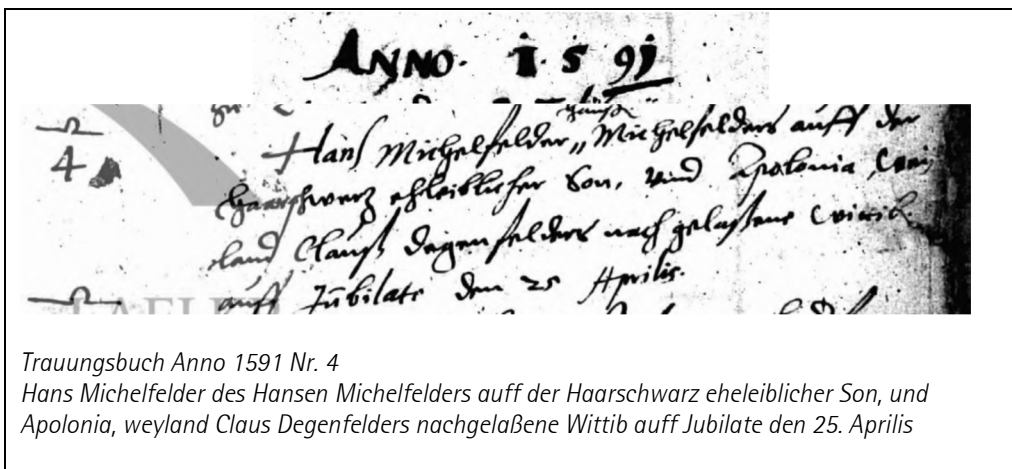 ANNO. 1591
4
Hans Michelfelder, Michelfelders auff der
Haarschwarz eheleiblicher Son, und Apolonia, wei
land Clauß Degenfelders nach gelaßene Wittib
auff Jubilate den 25 Aprilis.
Trauungsbuch Anno 1591 Nr. 4
Hans Michelfelder des Hansen Michelfelders auff der Haarschwarz eheleiblicher Son, und
Apolonia, weyland Claus Degenfelders nachgelaßene Wittib auff Jubilate den 25. Aprilis